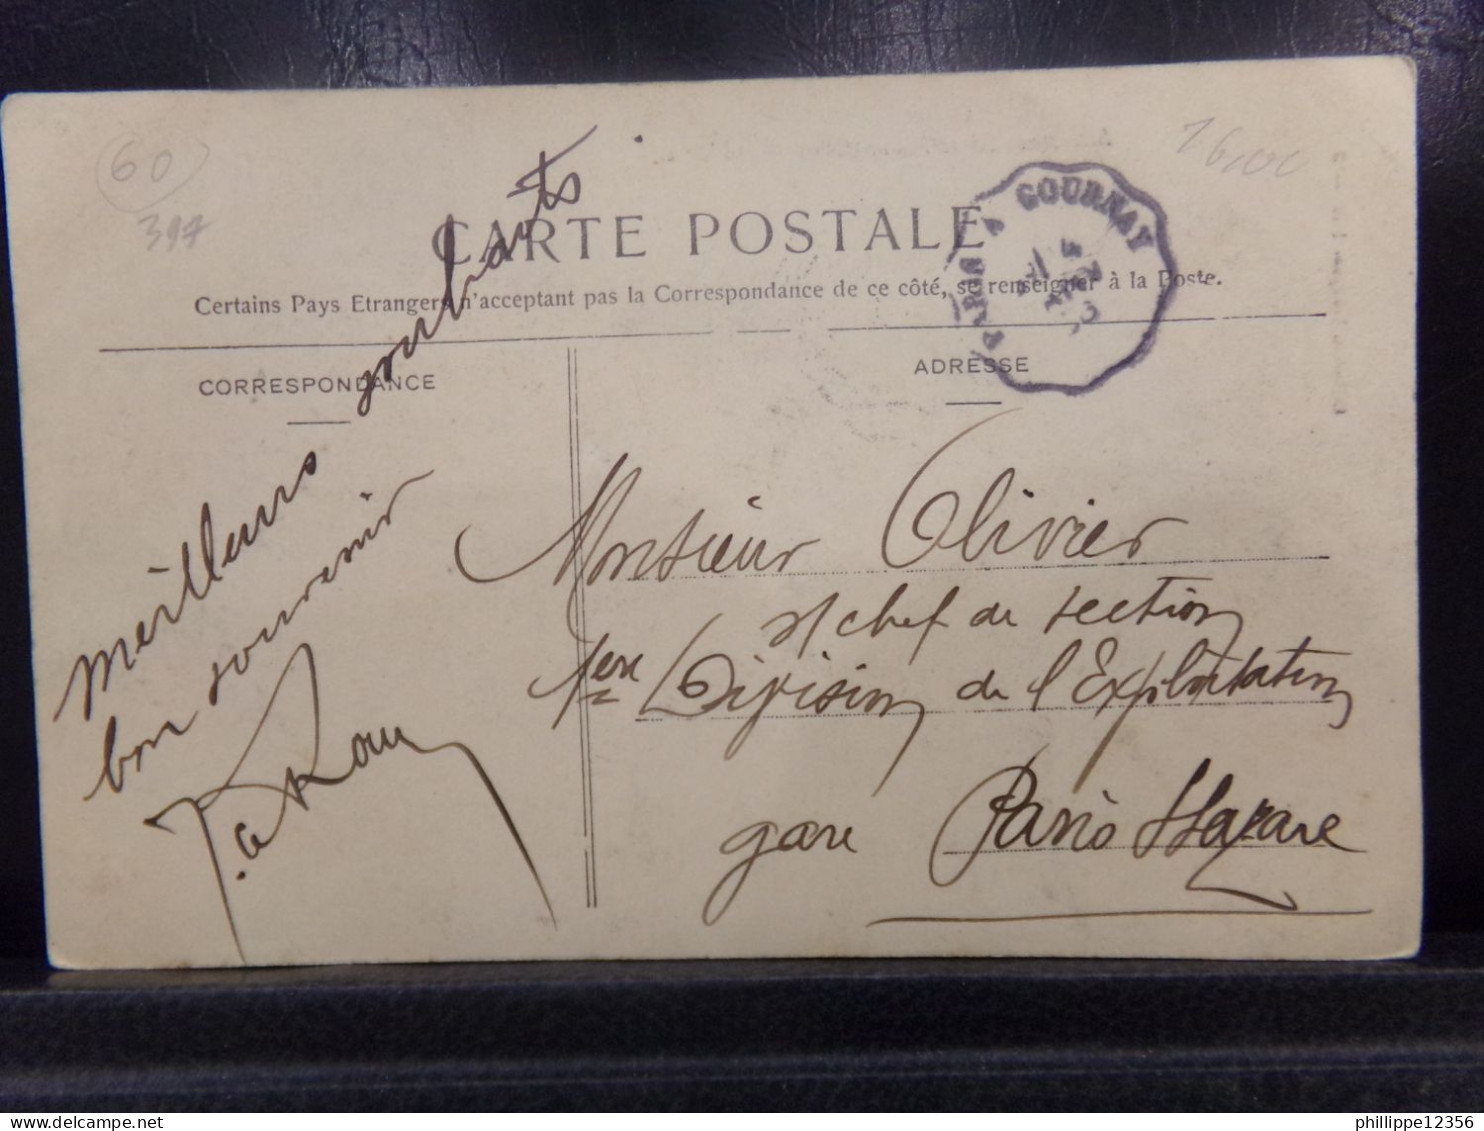 60
397
CARTE POSTALE
Certains Pays Etrangers n'acceptant pas la Correspondance de ce côté, se renseigner à la Poste.
PARIS A GOURNAY
CORRESPONDANCE
ADRESSE
meilleurs souhaits
bon souvenir
Monsieur Olivier
s/ chef de section
1ère Division de l'Exploitation
gare Paris St Lazare
phillippe12356